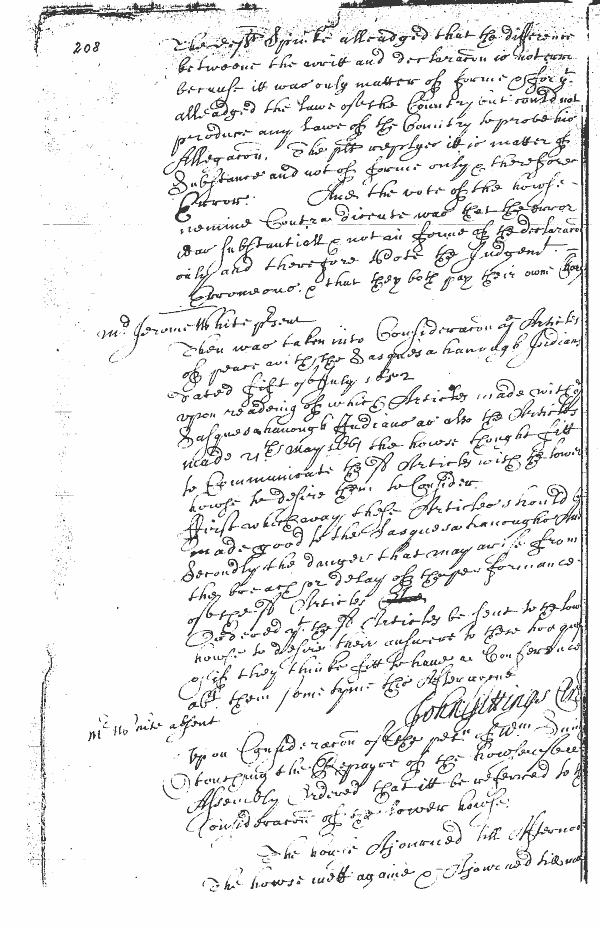 208
The deft Spinke alleadged that the difference
betweene the writt and declaracon is not error
because itt was only matter of forme & for yt
alleadged the lawe of the Country but could not
produce any lawe of the Country to prove his
Allegacon. The plt replyes it is matter of
Substance and not of forme only & therefore
Error. And the vote of the howse
nemine Contradicente was that the error
was substantiall & not in forme of the declaracon
only and therefore Vote the Judgemt
Erroneous, & that they both pay their owne
Mr Jerome White psent
Then was taken into Consideracon ye Articles
of peace with the Sasquesahanough Indians
dated fift of July 1652
upon readeing of which Articles made with ye
Sasquesahanough Indians as also the Articles
made 21th May 1661 the howse thought fitt
to Communicate the sd Articles with the lower
howse to desire them to Consider
First which way these Articles should be
made good to the Sasquesahanough
Secondly the danger that may arise from
the breach or delay of the performance
of the sd Articles
Ordered yt the sd Articles be sent to the low
howse to desire their answere to these
or if they thinke fitt to have a Conference
abt them some tyme this Afternoone
John Gittings
Mr White absent
Upon Consideracon of the petn of Wm
touching the Repayre of the howse
Assembly Ordered that itt be referred to the
Consideracon of the lower howse.
The howse Adjourned till Afternoo
The howse mett againe & Adjourned till